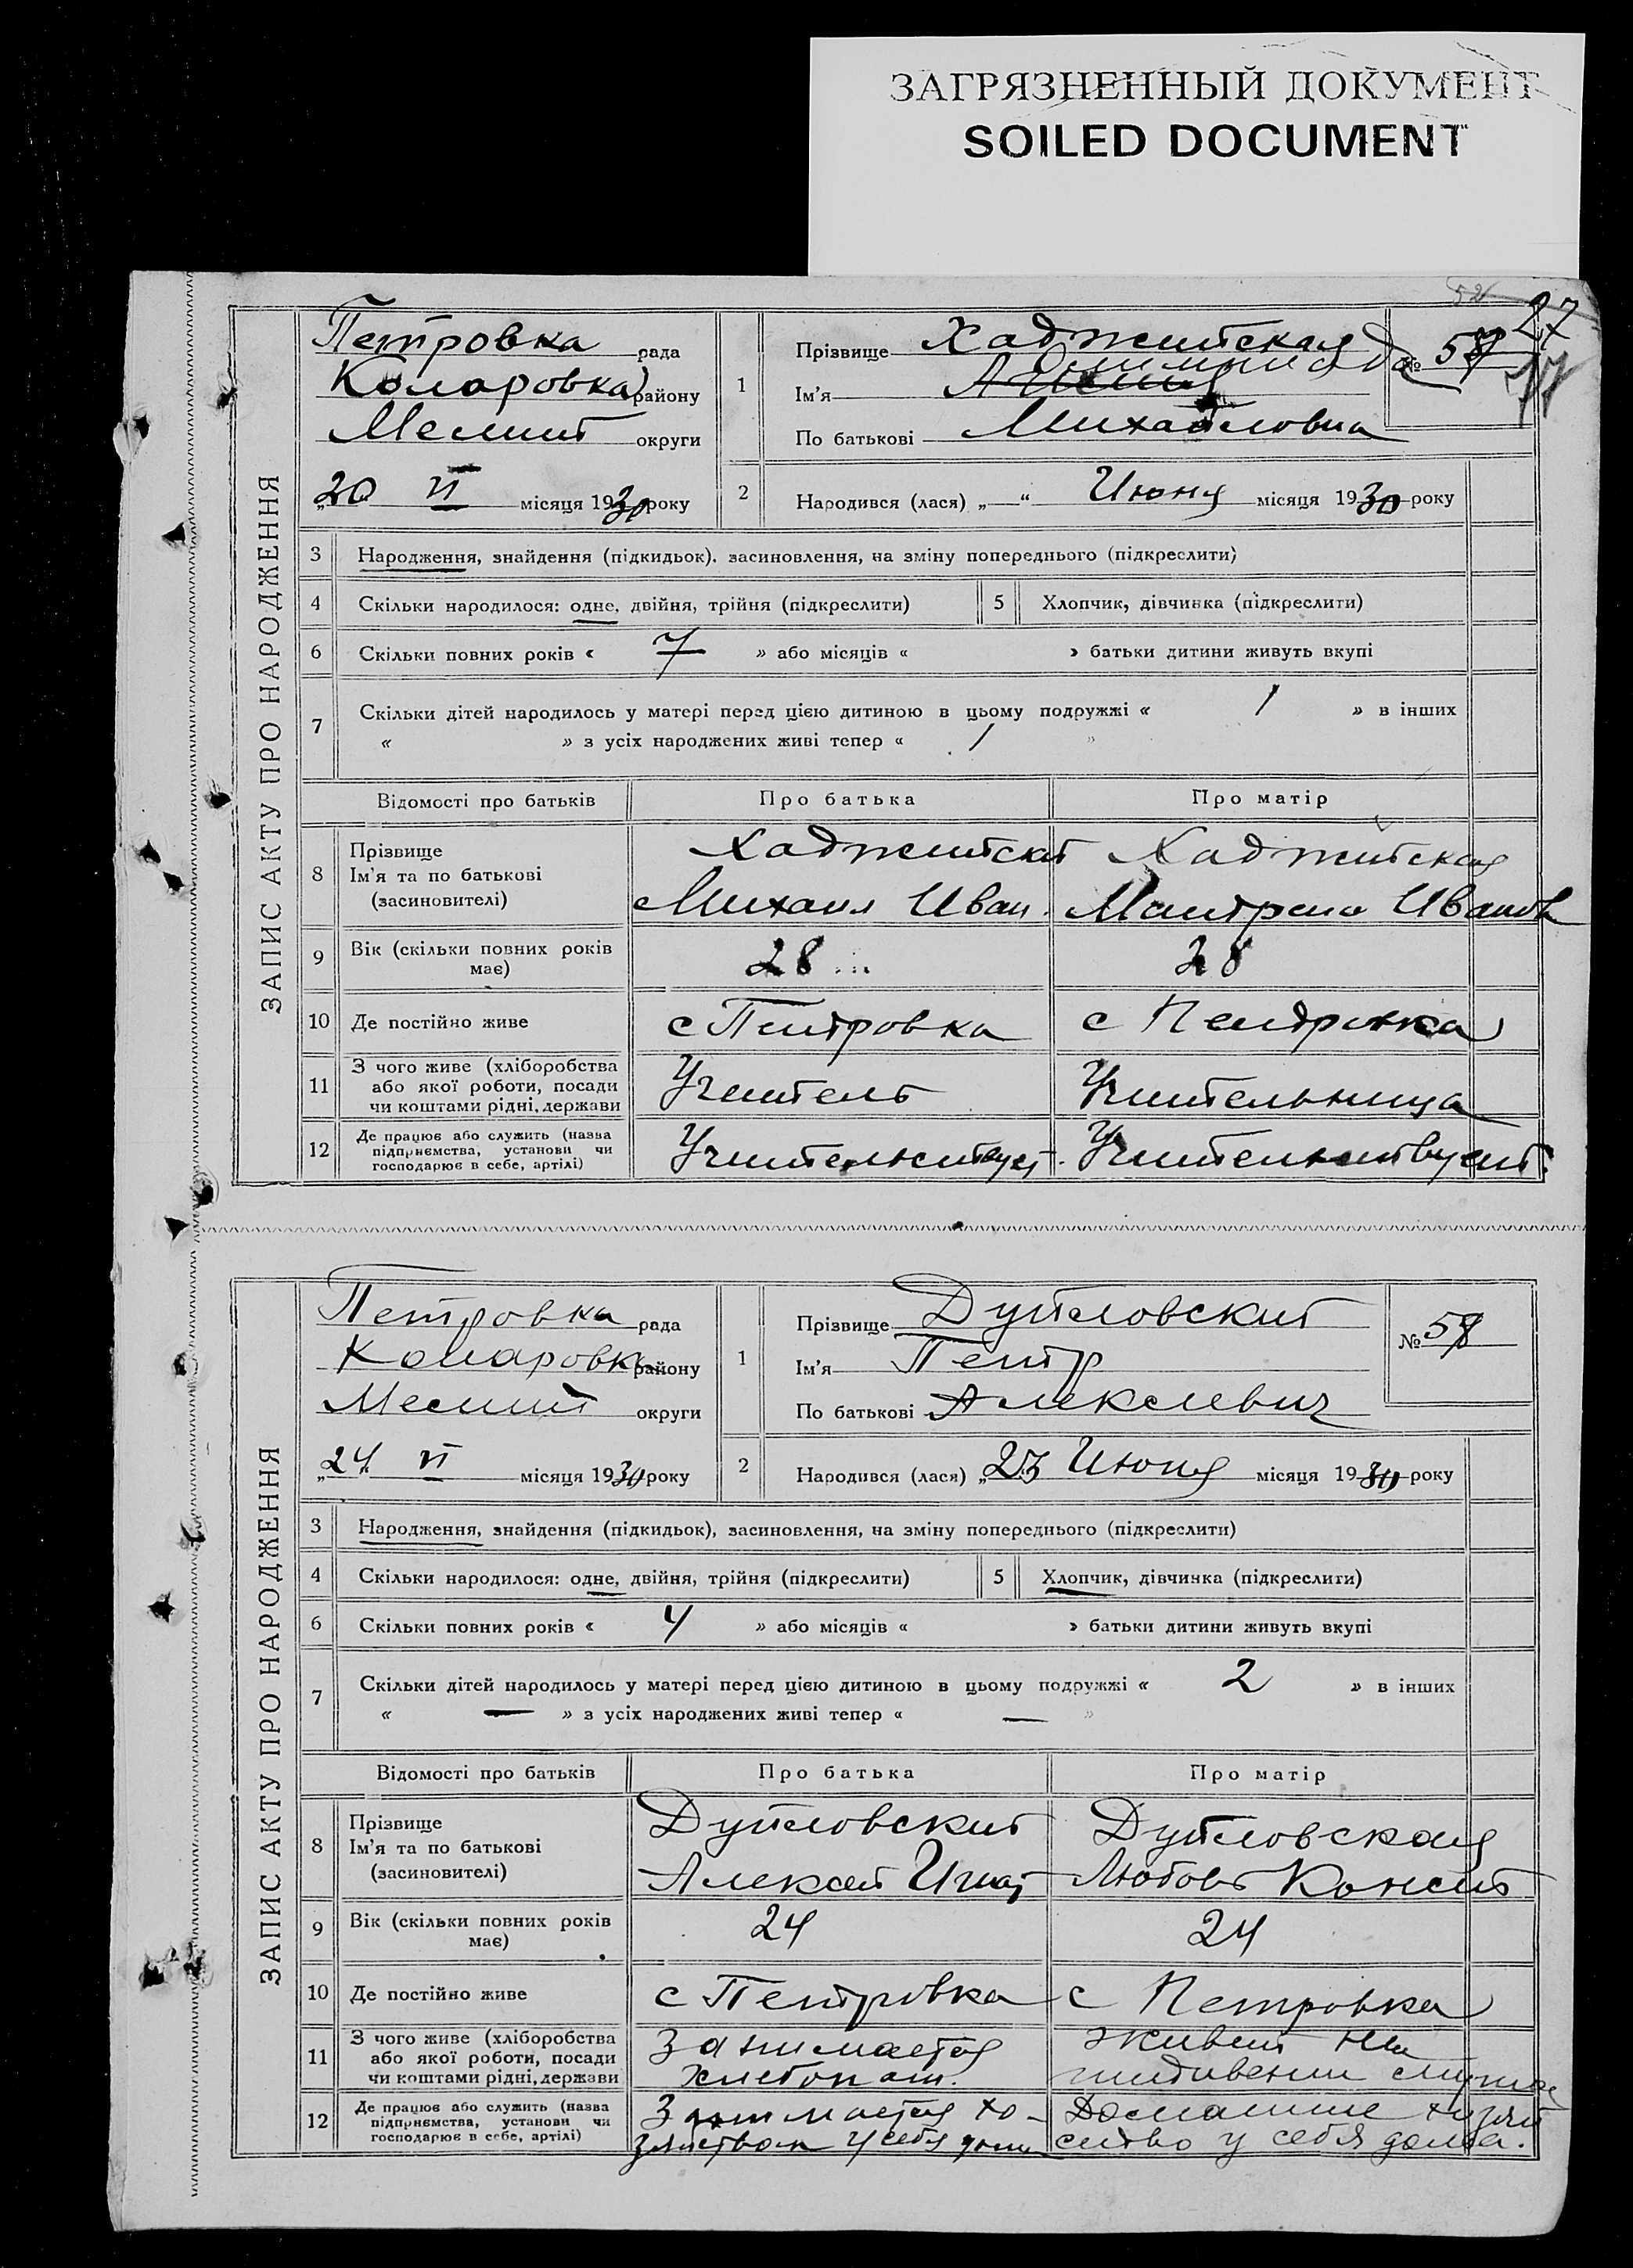 ЗАГРЯЗНЕННЫЙ ДОКУМЕНТ
SOILED DOCUMENT
27
ЗАПИС АКТУ ПРО НАРОДЖЕННЯ
Петровка рада
Коларовка району
Мелит округи
„20“ VI місяця 1930 року
1 Прізвище Хаджитская
Ім'я Олимпиада
По батькові Михайловна
№ 57
2 Народився (лася) „ “ Июня місяця 1930 року
3 Народження, знайдення (підкидьок), засиновлення, на зміну попереднього (підкреслити)
4 Скільки народилося: одне, двійня, трійня (підкреслити) 5 Хлопчик, дівчинка (підкреслити)
6 Скільки повних років « 7 » або місяців « » батьки дитини живуть вкупі
7 Скільки дітей народилось у матері перед цією дитиною в цьому подружжі « 1 » в інших
« » з усіх народжених живі тепер « 1 »
Відомості про батьків Про батька Про матір
8 Прізвище Ім'я та по батькові (засиновителі)
Хаджитскит Хаджитская
Михаил Иван. Матрена Иванов
9 Вік (скільки повних років має) 28 28
10 Де постійно живе с Петровка с Петровка
11 З чого живе (хліборобства або якої роботи, посади чи коштами рідні, держави Учитель Учительница
12 Де працює або служить (назва підприємства, установи чи господарює в себе, артілі) Учительствует. Учительствует.
ЗАПИС АКТУ ПРО НАРОДЖЕННЯ
Петровка рада
Коларовка району
Мелит округи
„24“ VI місяця 1930 року
1 Прізвище Дутловскит
Ім'я Петр
По батькові Алексеевич
№ 58
2 Народився (лася) „23 Июня місяця 1930 року
3 Народження, знайдення (підкидьок), засиновлення, на зміну попереднього (підкреслити)
4 Скільки народилося: одне, двійня, трійня (підкреслити) 5 Хлопчик, дівчинка (підкреслити)
6 Скільки повних років « 4 » або місяців « » батьки дитини живуть вкупі
7 Скільки дітей народилось у матері перед цією дитиною в цьому подружжі « 2 » в інших
« — » з усіх народжених живі тепер « — »
Відомості про батьків Про батька Про матір
8 Прізвище Ім'я та по батькові (засиновителі)
Дутловскит Дутловская
Алексей Игнат Любовь Конст
9 Вік (скільки повних років має) 24 24
10 Де постійно живе с Петровка с Петровка
11 З чого живе (хліборобства або якої роботи, посади чи коштами рідні, держави
Занимается живет на
хлебопаш. иждивении
12 Де працює або служить (назва підприємства, установи чи господарює в себе, артілі)
Занимается хо- Домашнее хозяй
зяйством у себя дома ство у себя дома.